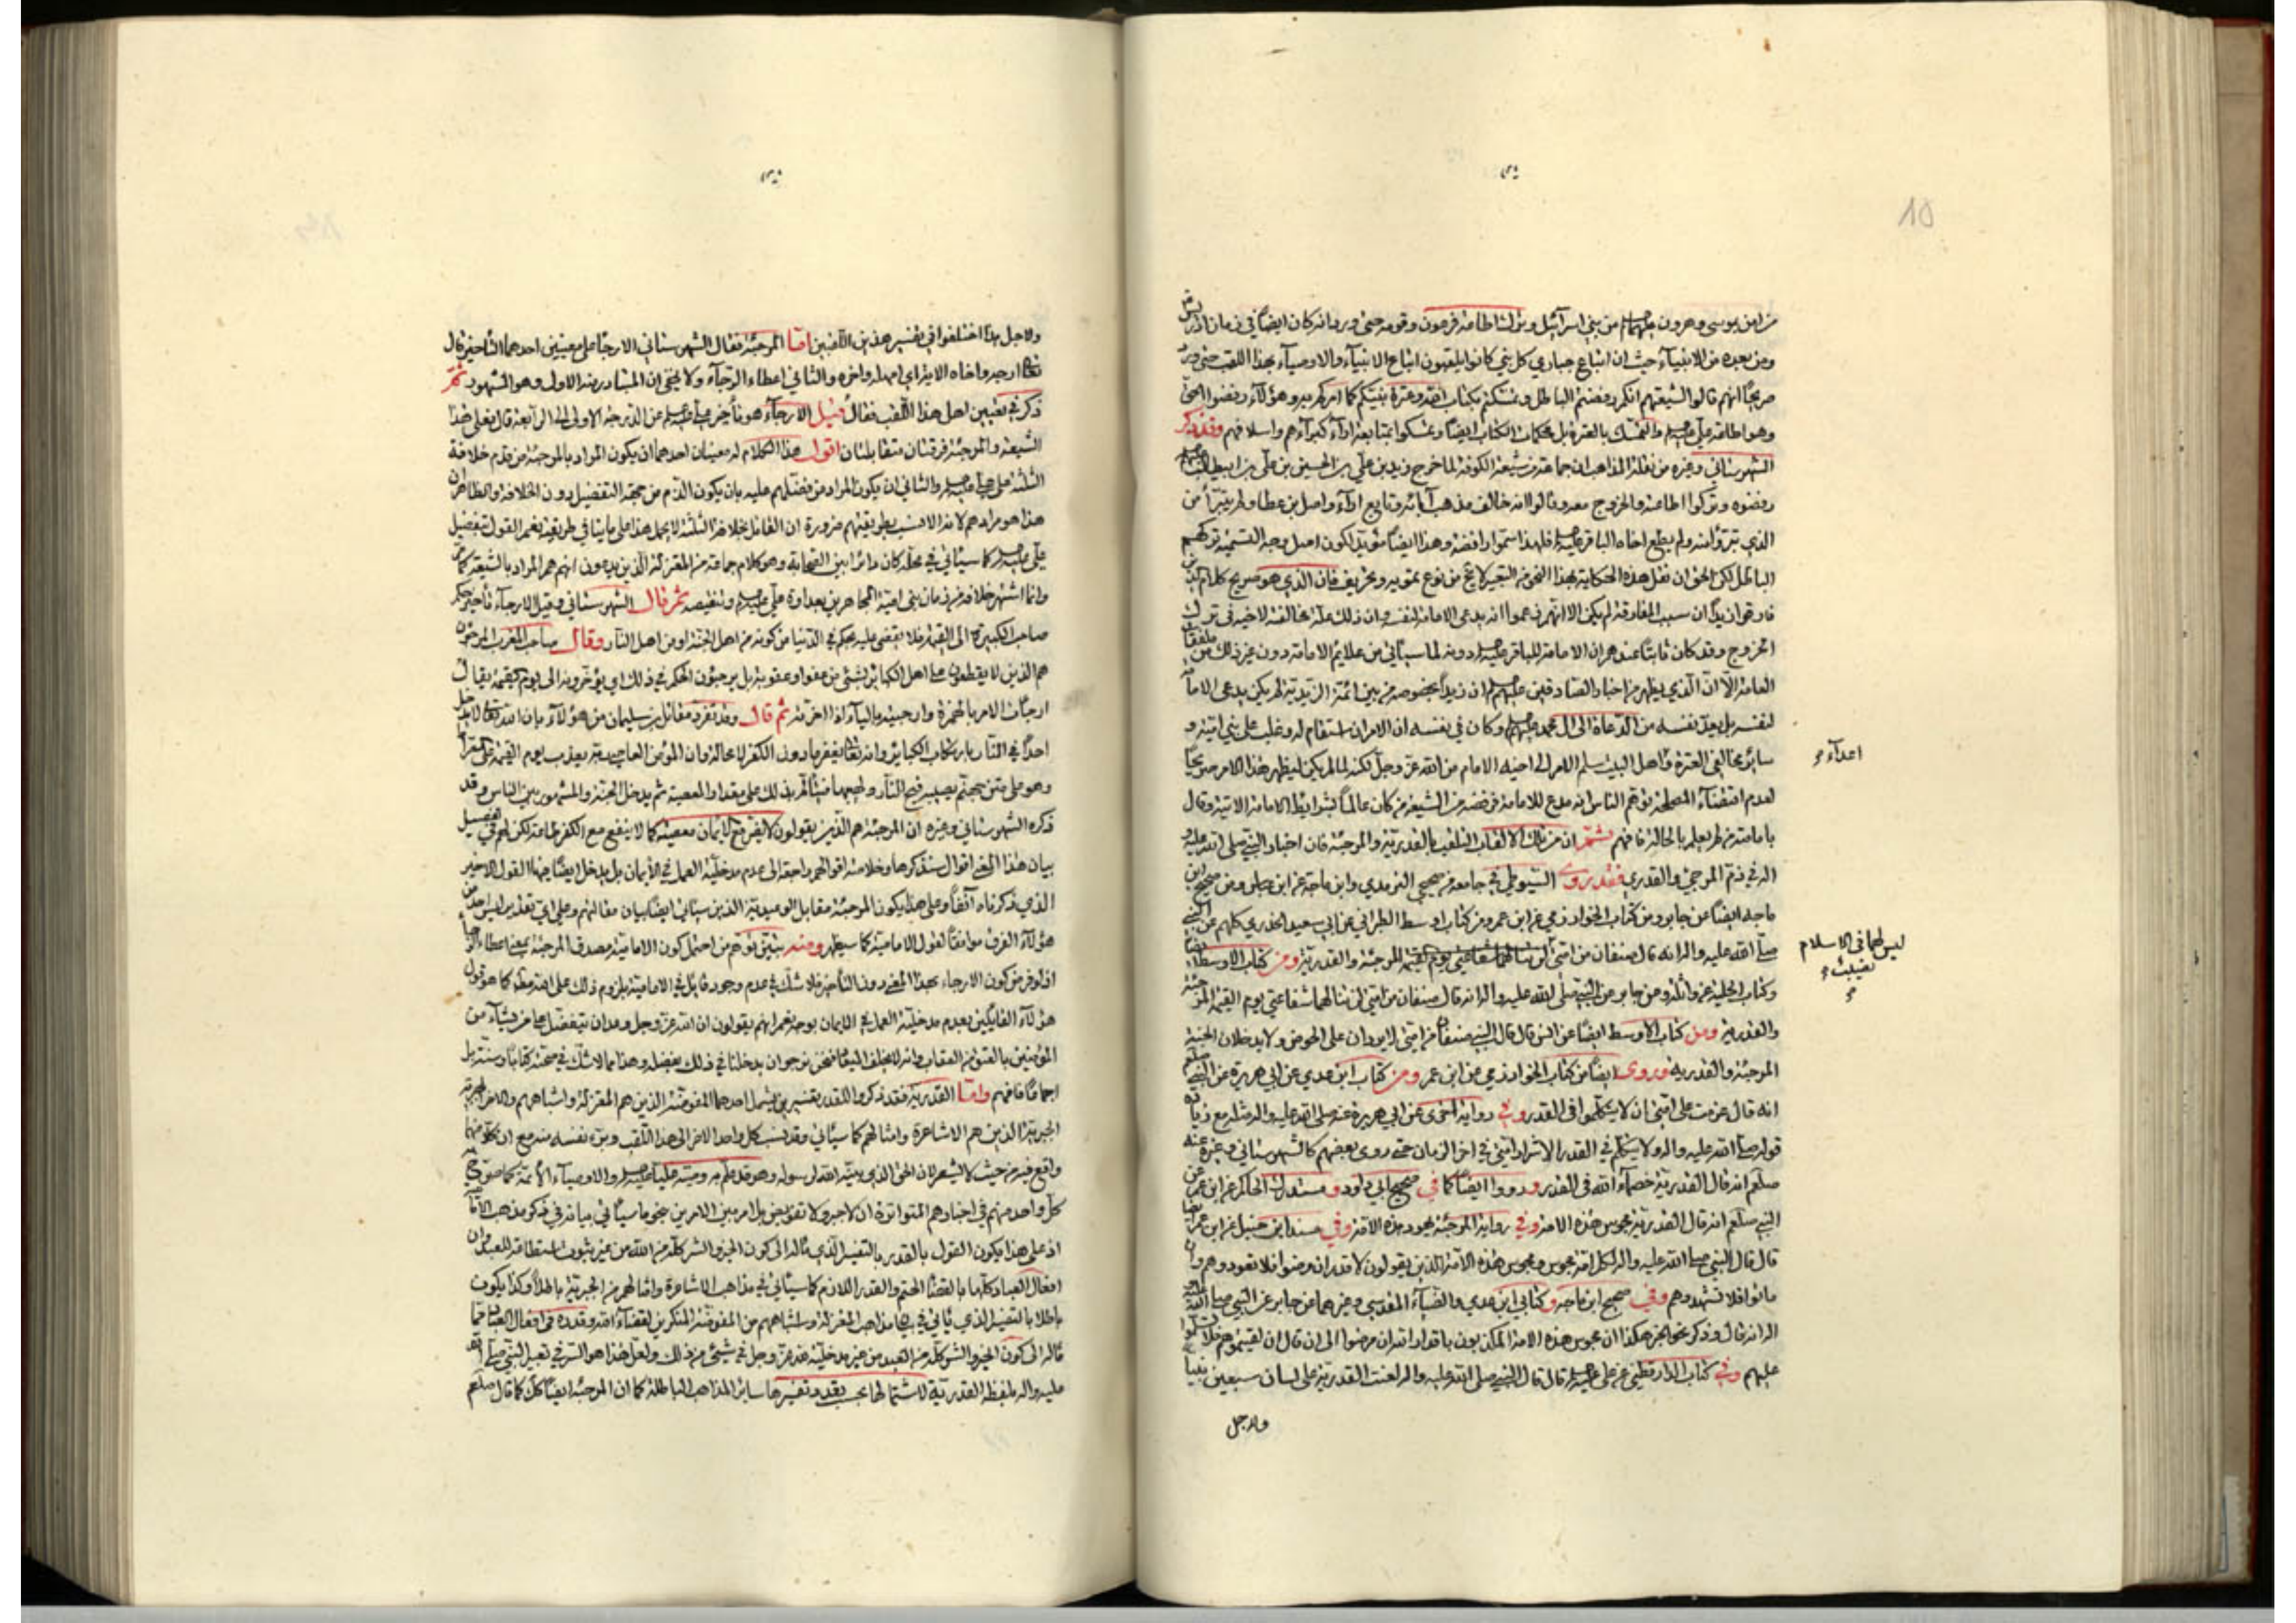 من امن بموسى وهرون عليهما السلام من بني اسرآئيل وترك اطاعة فرعون وقومه حتى ورد انه كان ايضاً في زمان ادريس
ومن بعده من الانبيآء حيث ان اتباع جباري كل نبي كانوا يلقبون اتباع الانبيآء والاوصيآء بهذا اللقب حتى ورد
صريحاً انهم قالوا لشيعتهم انكم رفضتم الباطل وتمسكتم بكتاب الله وعترة نبيكم كما امركم به وهؤلآء رفضوا الحق
وهو اطاعة علي والتمسك بالعترة بل محكمات الكتاب ايضاً وتمسكوا بمتابعة ارآء كبرآئهم واسلافهم وقد ذكر
الشهرستاني وغيره من نقلة المذاهب ان جماعة من شيعة الكوفة لما خرج زيد بن علي بن الحسين بن علي بن ابيطالب
رفضوه وتركوا اطاعته والخروج معه وقالوا انه خالف مذهب آبائه وتابع ارآء واصل بن عطا ولم يتبرأ من
الذي تبرؤا منه ولم يطع اخاه الباقر فلهذا سموا رافضة وهذا ايضاً مؤيد لكون اصل وجه التسمية تركهم
الباطل لكن الحق ان نقل هذه الحكاية بهذا النحو من التعبير لا يخ من نوع تمويه وتحريف فان الذي هو صريح كلام
فارقوا زيداً ان سبب المفارقة لم يكن الا انهم زعموا انه يدعي الامامة لنفسه وان ذلك علة مخالفته لاخيه في ترك
الخروج وقد كان ثابتاً عندهم ان الامامة للباقر دونه لما سيأتي من علايم الامامة دون غير ذلك من
العامة الا ان الذي يظهر من اخبار الصادقين عليهم ان زيداً بخصوصه من بين ائمة الزيدية لم يكن يدعي الامامة
لنفسه بل يعد نفسه من الدعاة الى ال محمد وكان في نفسه ان الامر ان استقام له وغلب على بني امية و
سائر مخالفي العترة واهل البيت سلم الامر الى اخيه الامام من الله عز وجل لكنه لما لم يكن ليظهر هذا الامر صريحاً
اعدآء
لعدم اقتضآء المصلحة توهم الناس انه مدع للامامة فرفضه من الشيعة من كان عالماً بشرايط الامامة الاتية وقال
بامامته من لم يعلم بالحالة فافهم ثم ان من تلك الالقاب التلقب بالقدرية والمرجئة فان اخبار النبي صلى الله عليه و
اله في ذم المرجئ والقدري فقد روى السيوطي في جامعه من صحيحي الترمذي وابن ماجة عن ابن عباس ومن صحيح ابن
ماجه ايضاً عن جابر ومن كتاب الخوارزمي عن ابن عمر ومن كتاب اوسط الطبراني عن ابي سعيد الخدري كلهم عن النبي
صلى الله عليه واله انه قال صنفان من امتي لن تنالهما شفاعتي يوم القيمة المرجئة والقدرية ومن كتاب الاوسط ايضاً
ليس لهما في الاسلام
نصيب
وكتاب الحلية عن واثلة ومن جابر عن النبي صلى الله عليه واله انه قال صنفان من امتي لن تنالهما شفاعتي يوم القيمة المرجئة
والقدرية ومن كتاب الاوسط ايضاً عن انس قال قال النبي صنفان من امتي لا يردان على الحوض ولا يدخلان الجنة
المرجئة والقدرية وروى ايضاً من كتاب الخوارزمي عن ابن عمر ومن كتاب ابن عدي عن ابي هريرة عن النبي صلعم
انه قال عزمت على امتي ان لا يتكلموا في القدر وفي رواية اخرى عن ابي هريرة عنه صلى الله عليه واله مثله مع زيادة
قوله صلى الله عليه واله ولا يتكلم في القدر الا شرار امتي في اخر الزمان حتى روى بعضهم كالشهرستاني وغيره عنه
صلعم انه قال القدرية خصمآء الله في القدر ورووا ايضاً كما في صحيح ابي داود ومستدرك الحاكم عن ابن عمر عن
النبي صلعم انه قال القدرية مجوس هذه الامة وفي رواية المرجئة يهود هذه الامة وفي مسند ابن حنبل عن ابن عمر ايضاً
قال قال النبي صلى الله عليه واله لكل امة مجوس ومجوس هذه الامة الذين يقولون لا قدر ان مرضوا فلا تعودوهم وان
ماتوا فلا تشهدوهم وفي صحيح ابن ماجه وكتابي ابن عدي والضيآء المقدسي وغيرهما عن جابر عن النبي صلى الله عليه و
اله انه قال وذكر نحو الخبر هكذا ان مجوس هذه الامة المكذبون باقدار الله ان مرضوا الى ان قال ان لقيتموهم فلا تسلموا
عليهم وفي كتاب الدارقطني عن علي قال قال النبي صلى الله عليه واله لعنت القدرية على لسان سبعين نبيا
ولاجل
ولاجل هذا اختلفوا في تفسير هذين اللقبين اما المرجئة فقال الشهرستاني الارجآء على معنيين احدهما التاخير قال
تعالى ارجه واخاه الاية اي امهله واخره والثاني اعطاء الرجآء ولا يخفى ان المتبادر منه الاول وهو المشهور ثم
ذكر في تعيين اهل هذا اللقب فقال قيل الارجآء هو تأخير علي عن الدرجة الاولى الى الرابعة قال فعلى هذا
الشيعة والمرجئة فرقتان متقابلتان اقول هذا الكلام له معنيان احدهما ان يكون المراد بالمرجئة من قدم خلافة
الثلثة على علي والثاني ان يكون المراد من فضلهم عليه بان يكون الذم من جهة التفضيل دون الخلافة والظاهر ان
هذا هو مرادهم لانه الانسب بطريقتهم ضرورة ان القائل بخلافة الثلثة لا يحمل هذا على ما ينافي طريقته نعم القول بتفضيل
علي كما سيأتي في محله كان دائراً بين الصحابة وهو كلام جماعة من المعتزلة الذين يدعون انهم هم المراد بالشيعة
وانما اشتهر خلافه من زمان بني امية المجاهرين بعداوة علي وتنقيصه ثم قال الشهرستاني وقيل الارجآء تأخير حكم
صاحب الكبيرة الى القيمة فلا يقضى عليه بحكم في الدنيا من كونه من اهل الجنة او من اهل النار وقال صاحب المغرب المرجئون
هم الذين لا يقطعون على اهل الكبائر بشئ من عفو او عقوبة بل يرجئون الحكم في ذلك اي يؤخرونه الى يوم القيمة يقال
ارجأت الامر بالهمزة وارجيته بالياء اذا اخرته ثم قال وقد تفرد مقاتل بن سليمان من هؤلآء بان الله تعالى لا يدخل
احداً في النار بارتكاب الكبائر وانه تعالى يغفر ما دون الكفر لا محالة وان المؤمن العاصي ربه يعذب يوم القيمة على الصراط
وهو على متن جهنم يصيبه لفح النار ولهبها فيتألم بذلك على مقدار المعصية ثم يدخل الجنة والمشهور بين الناس وقد
ذكره الشهرستاني وغيره ان المرجئة هم الذين يقولون لا يضر مع الايمان معصية كما لا ينفع مع الكفر طاعة لكن لهم في تفصيل
بيان هذا المعنى اقوال سنذكرها وخلاصة اقوالهم راجعة الى عدم مدخلية العمل في الايمان بل يدخل ايضاً فيها القول الاخير
الذي ذكرناه آنفاً وعلى هذا يكون المرجئة مقابل الوعيدية الذين سيأتي ايضاً بيان مقالتهم وعلى اي تقدير ليس احد من
هؤلآء الفرق موافقاً لقول الامامية كما سيظهر ومنه يتبين توهم من احتمل كون الامامية مصدق المرجئة بمعنى اعطاء الرجآء
اذ لو فرض كون الارجاء بهذا المعنى دون التأخير فلا شك في عدم وجود قائل في الامامية بلزوم ذلك على الله مطلقاً كما هو قول
هؤلآء القائلين بعدم مدخلية العمل في الايمان بوجه نعم انهم يقولون ان الله عز وجل وعد ان يتفضل على من يشآء من
المؤمنين بالعفو من العقاب وانه لا يخلف الميعاد فنحن نرجو ان يدخلنا في ذلك بفضله وهذا مما لا شك في صحته كتاباً وسنة بل
اجماعاً فافهم واما القدرية فقد ذكروا للقدر تفسيرين يشمل احدهما المفوضة الذين هم المعتزلة واشباههم والاخر المجبرة
الجبرية الذين هم الاشاعرة وامثالهم كما سيأتي وقد نسب كل واحد الاخر الى هذا اللقب وبرء نفسه منه مع ان كلا منهما
واقع فيه من حيث لا يشعر لان الحق الذي بينه الله لرسوله وهو قد علم به وصيه علياً والاوصيآء الائمة كما صرح به
كل واحد منهم في اخبارهم المتواترة ان لا جبر ولا تفويض بل امر بين الامرين على نحو ما سيأتي بيانه في ذكر مذهب الامامية
اذ على هذا يكون القول بالقدر بالتفسير الذي مآله الى كون الخير والشر كله من الله من غير ثبوت استطاعة للعبد وان
افعال العباد كلها بالقضآء الحتم والقدر اللازم كما سيأتي في مذاهب الاشاعرة وامثالهم من الجبرية باطلاً وكذا يكون
باطلا بالتفسير الذي يأتي في بيان مذاهب المعتزلة واشباههم من المفوضة المنكرين لقضآء الله وقدره في افعال العباد مما
مآله الى كون الخير والشر كله من العبد من غير مدخلية لله عز وجل في شئ من ذلك ولعل هذا هو السر في تعبير النبي صلى الله
عليه واله بلفظ القدرية لاشتمالها بحسب تعدد تفسيرها سائر المذاهب الباطلة كما ان المرجئة ايضاً كذلك كما قال صلعم